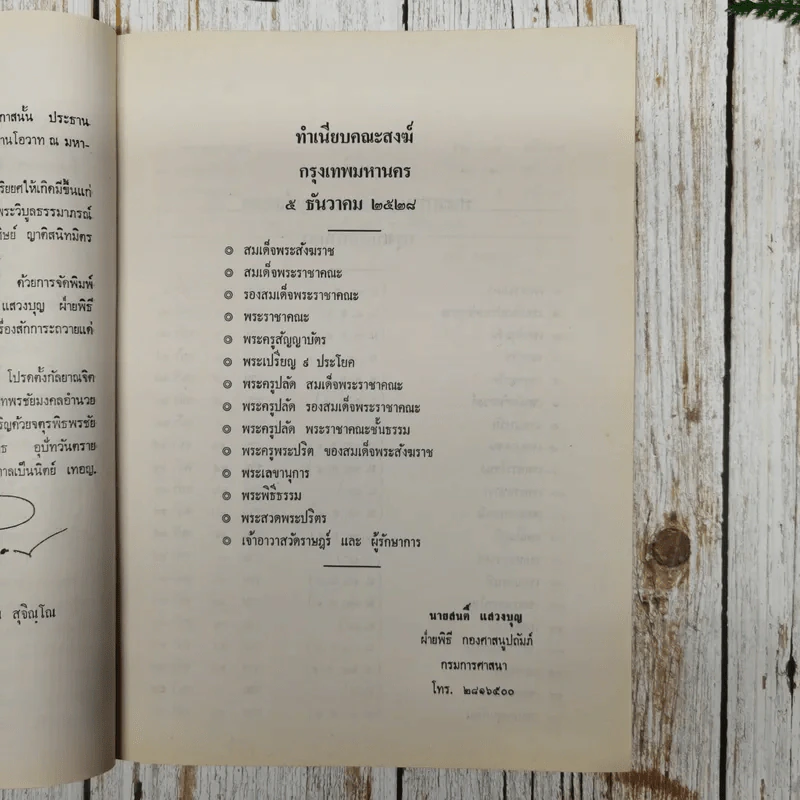 กาสนั้น ประธาน
านโอวาท ณ มหา-
ริยยศให้เกิดมีขึ้นแก่
พระวิบูลธรรมาภรณ์
ศิษย์ ญาติสนิทมิตร
ด้วยการจัดพิมพ์
แสวงบุญ ฝ่ายพิธี
รื่องสักการะถวายแด่
โปรดตั้งกัลยาณจิต
ทพรชัยมงคลอำนวย
ริญด้วยจตุรพิธพรชัย
ธ อุปัทวันตราย
าลเป็นนิตย์ เทอญ.
สุจิณฺโณ
ทำเนียบคณะสงฆ์
กรุงเทพมหานคร
๕ ธันวาคม ๒๕๒๘
๏ สมเด็จพระสังฆราช
๏ สมเด็จพระราชาคณะ
๏ รองสมเด็จพระราชาคณะ
๏ พระราชาคณะ
๏ พระครูสัญญาบัตร
๏ พระเปรียญ ๙ ประโยค
๏ พระครูปลัด สมเด็จพระราชาคณะ
๏ พระครูปลัด รองสมเด็จพระราชาคณะ
๏ พระครูปลัด พระราชาคณะชั้นธรรม
๏ พระครูพระปริต ของสมเด็จพระสังฆราช
๏ พระเลขานุการ
๏ พระพิธีธรรม
๏ พระสวดพระปริตร
๏ เจ้าอาวาสวัดราษฎร์ และ ผู้รักษาการ
นายสนติ์ แสวงบุญ
ฝ่ายพิธี กองศาสนูปถัมภ์
กรมการศาสนา
โทร. ๒๘๑๖๕๐๐